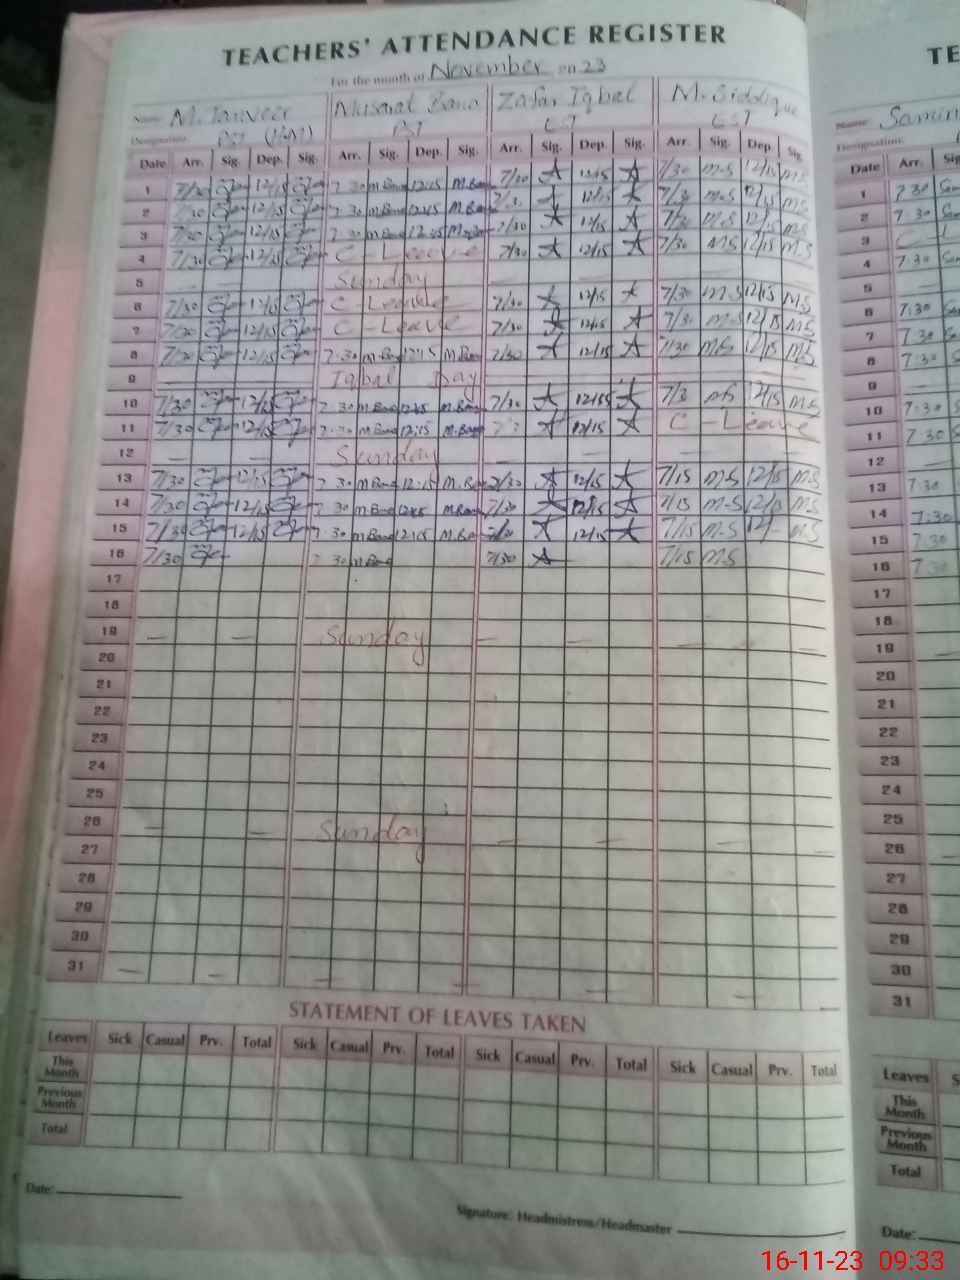 TEACHERS' ATTENDANCE REGISTER
For the month of November on 23
Name: M. Tanveer Musarat Bano Zafar Iqbal M. Siddique
Designation: PST EST
Date Arr. Sig. Dep. Sig. Arr. Sig. Dep. Sig. Arr. Sig. Dep. Sig. Arr. Sig. Dep. Sig.
1 7/30 12/15 7 30 M Bano 12:15 M. Bano 7/30 12/15 7/30 M-S 12/15 M-S
2 7/30 12/15 7 30 M Bano 12:15 M. Bano 7/30 12/15 7/30 M-S 12/15 M-S
3 7/30 12/15 7 30 M Bano 12:15 M. Bano 7/30 12/15 7/30 M-S 12/15 M-S
4 7/30 12/15 C - Leave 7/30 12/15 7/30 M-S 12/15 M-S
5 Sunday
6 7/30 12/15 C - Leave 7/30 12/15 7/30 M-S 12/15 M-S
7 7/30 12/15 C - Leave 7/30 12/15 7/30 M-S 12/15 M-S
8 7/30 12/15 7 30 M Bano 12:15 M. Bano 7/30 12/15 7/30 M-S 12/15 M-S
9 Iqbal Day
10 7/30 12/15 7 30 M Bano 12:15 M. Bano 7/30 12/15 7/3 M-S 12/15 M-S
11 7/30 12/15 7 30 M Bano 12:15 M. Bano 12/15 C - Leave
12 — — Sunday — —
13 7/30 12/15 7 30 M Bano 12:15 M. Bano 7/30 12/15 7/15 M-S 12/15 M-S
14 7/30 12/15 7 30 M Bano 12:15 M. Bano 7/30 12/15 7/15 M-S 12/15 M-S
15 7/30 12/15 7 30 M Bano 12:15 M. Bano 12/15 7/15 M-S 12/- M-S
16 7/30 7 30 M Bano 7/30 7/15 M-S
17
18
19 — — Sunday — — — —
20
21
22
23
24
25
26 — — Sunday — — — —
27
28
29
30
31 — — — — — — —
STATEMENT OF LEAVES TAKEN
Leaves Sick Casual Prv. Total Sick Casual Prv. Total Sick Casual Prv. Total Sick Casual Prv. Total
This Month
Previous Month
Total
Date:
Signature: Headmistress/Headmaster
TE
Name:
Designation:
Date Arr.
1 7 30
2 7 30
3
4 7 30
5
6 7:30
7 7 30
8 7:30
9
10 7:30
11 7 30
12
13 7:30
14 7:30
15 7:30
16 7 30
17
18
19
20
21
22
23
24
25
26
27
28
29
30
31
Leaves
This Month
Previous Month
Total
Date:
16-11-23 09:33